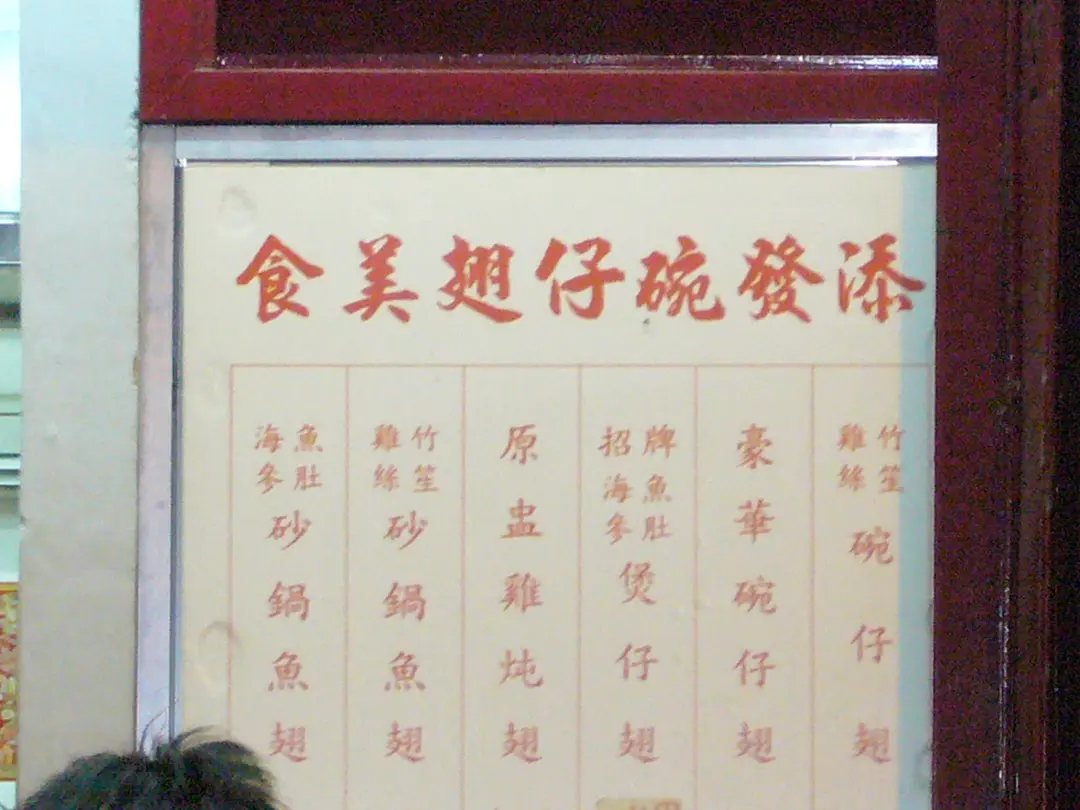 添發碗仔翅美食
竹笙雞絲碗仔翅
豪華碗仔翅
招牌魚肚海參煲仔翅
原盅雞炖翅
竹笙雞絲砂鍋魚翅
魚肚海參砂鍋魚翅